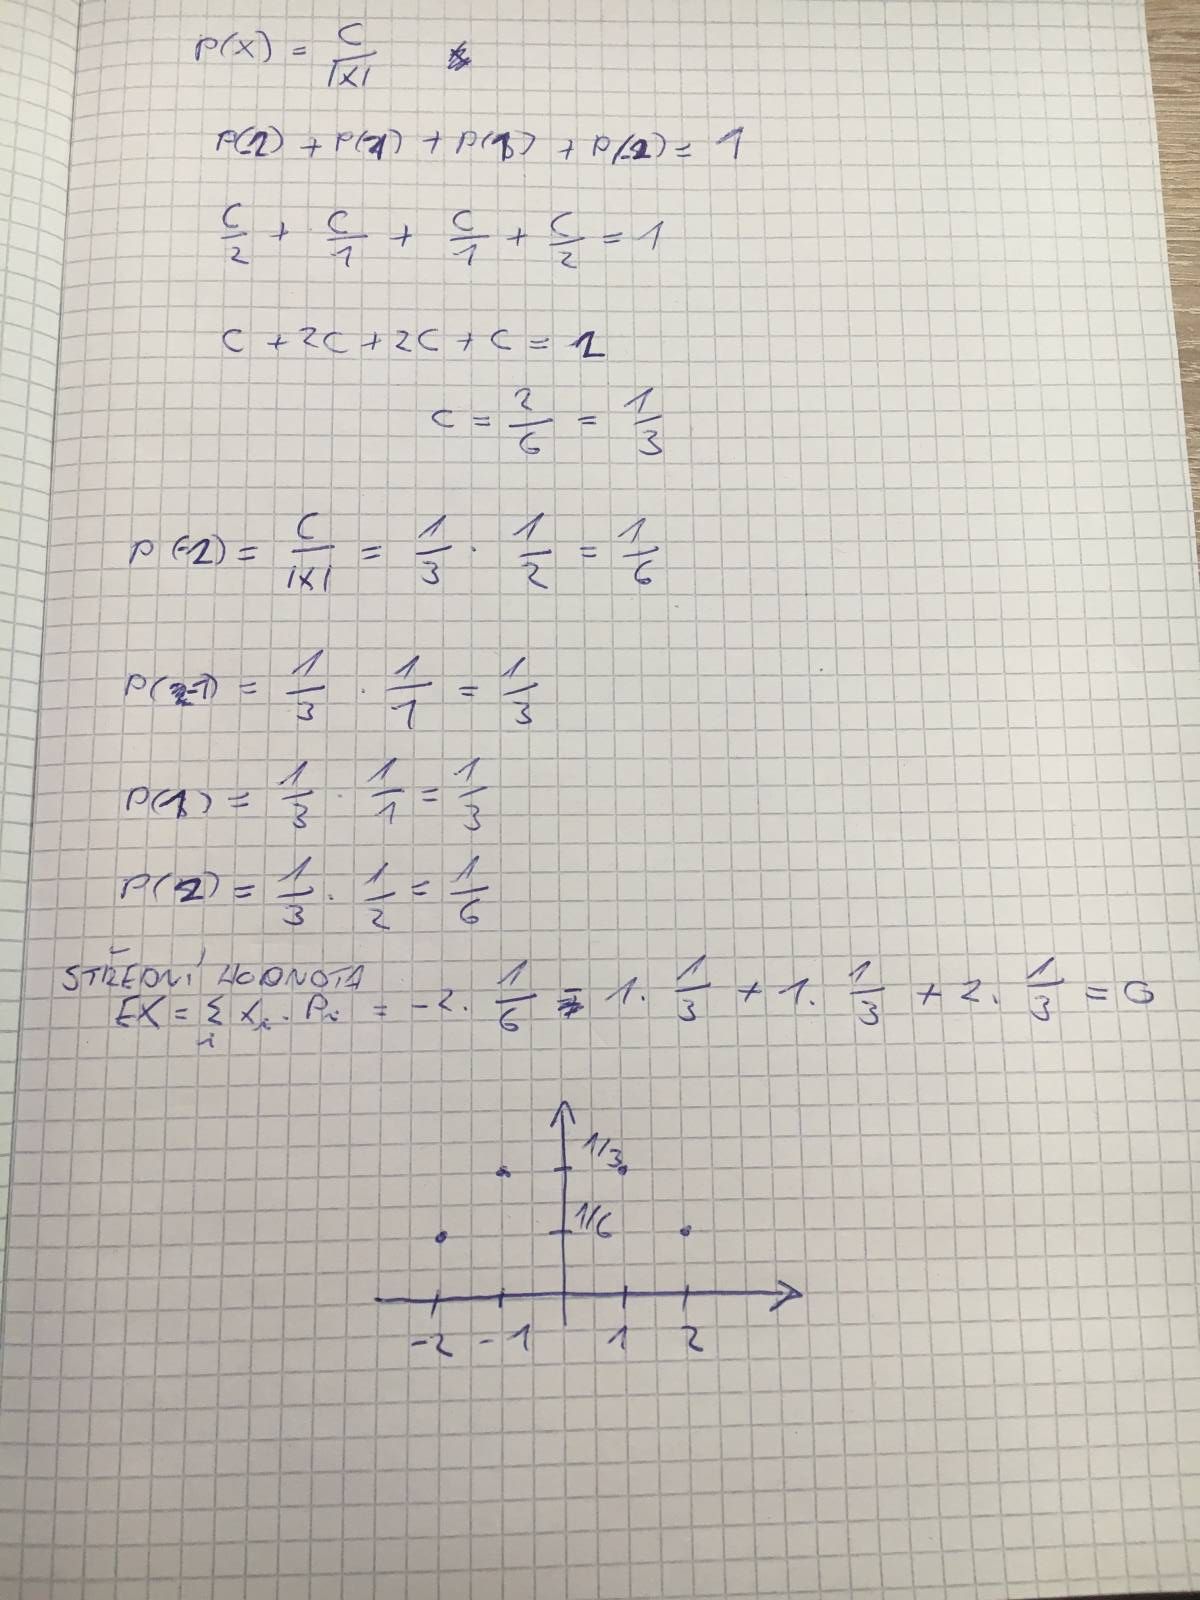 P(X) = C/|X|
P(-2) + P(-1) + P(1) + P(2) = 1
C/2 + C/1 + C/1 + C/2 = 1
C + 2C + 2C + C = 2
C = 2/6 = 1/3
P(-2) = C/|X| = 1/3 · 1/2 = 1/6
P(-1) = 1/3 · 1/1 = 1/3
P(1) = 1/3 · 1/1 = 1/3
P(2) = 1/3 · 1/2 = 1/6
STŘEDNÍ HODNOTA
EX = Σ_i X_i · P_i = -2 · 1/6 - 1 · 1/3 + 1 · 1/3 + 2 · 1/3 = 0
1/3
1/6
-2 -1 1 2